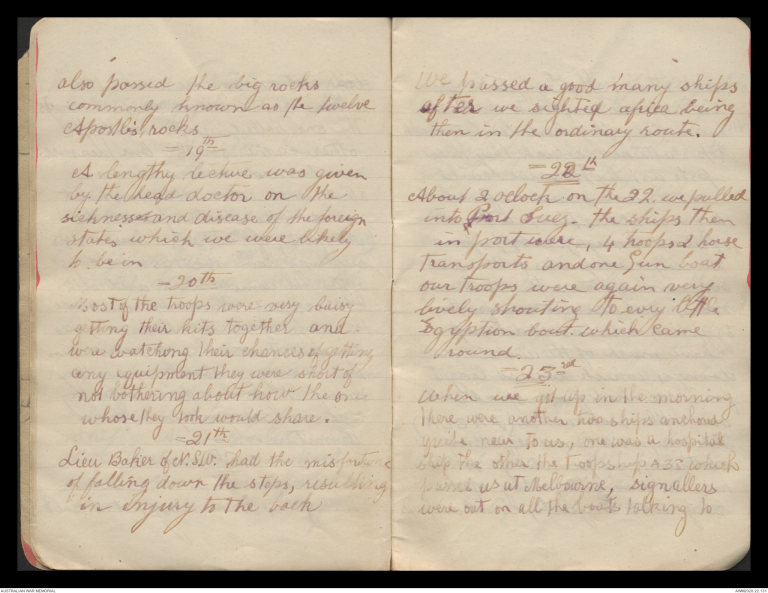 also passed the big rocks
commonly known as the twelve
Apostls rocks
- 19th
A lengthy lecture was given
by the head doctor on the
sicknesses and disease of the foreign
states which we were likely
to be in
- 20th
most of the troops were very buisy
getting their kits together and
were watching their chances of getting
any equipment they were short of
not bothering about how the one
whose they took would share.
- 21th
Lieu Baker of N.S.W. had the misfortune
of falling down the steps, resulting
in injury to the back
We passed a good many ships
after we sighted africa being
then in the ordinary route.
- 22th
About 2 oclock on the 22 we pulled
into Port Suez. the ships then
in port were, 4 troops 2 horse
transports and one Gun boat
our troops were again very
lively shouting to evry little
Egyption boat which came
round.
- 23rd
When we got up in the morning
there were another two ships anchored
quite near to us, one was a hospital
ship the other the troopship A 35 which
passed us at Melbourne, signallers
were out on all the boats talking to
AUSTRALIAN WAR MEMORIAL